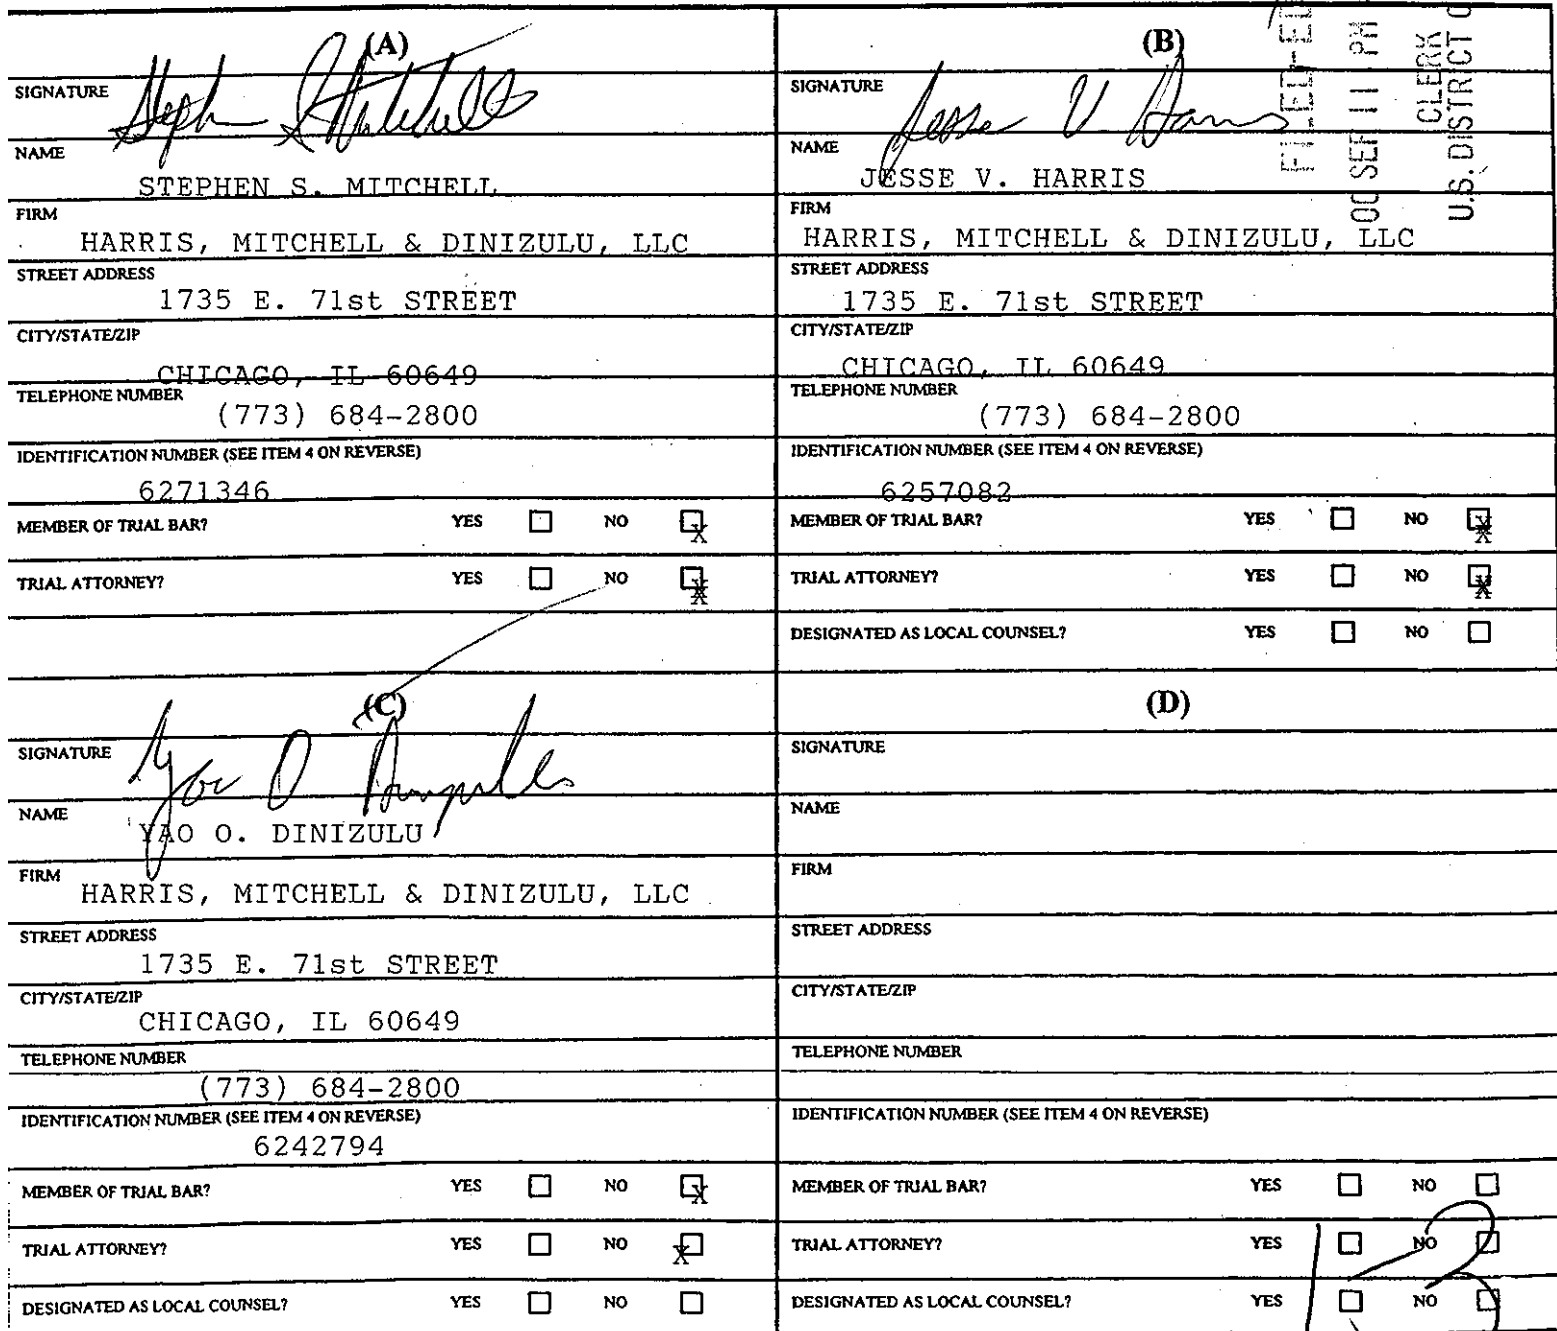 (A)
SIGNATURE Stephen S Mitchell
NAME
STEPHEN S. MITCHELL
FIRM
HARRIS, MITCHELL & DINIZULU, LLC
STREET ADDRESS
1735 E. 71st STREET
CITY/STATE/ZIP
CHICAGO, IL 60649
TELEPHONE NUMBER
(773) 684-2800
IDENTIFICATION NUMBER (SEE ITEM 4 ON REVERSE)
6271346
MEMBER OF TRIAL BAR? YES NO X
TRIAL ATTORNEY? YES NO X
(B)
SIGNATURE Jesse V. Harris
NAME
JESSE V. HARRIS
FIRM
HARRIS, MITCHELL & DINIZULU, LLC
STREET ADDRESS
1735 E. 71st STREET
CITY/STATE/ZIP
CHICAGO, IL 60649
TELEPHONE NUMBER
(773) 684-2800
IDENTIFICATION NUMBER (SEE ITEM 4 ON REVERSE)
6257082
MEMBER OF TRIAL BAR? YES NO X
TRIAL ATTORNEY? YES NO X
DESIGNATED AS LOCAL COUNSEL? YES NO
FILED-ED
00 SEP 11 PM
CLERK
U.S. DISTRICT
(C)
SIGNATURE Yao O Dinizulu
NAME
YAO O. DINIZULU
FIRM
HARRIS, MITCHELL & DINIZULU, LLC
STREET ADDRESS
1735 E. 71st STREET
CITY/STATE/ZIP
CHICAGO, IL 60649
TELEPHONE NUMBER
(773) 684-2800
IDENTIFICATION NUMBER (SEE ITEM 4 ON REVERSE)
6242794
MEMBER OF TRIAL BAR? YES NO X
TRIAL ATTORNEY? YES NO X
DESIGNATED AS LOCAL COUNSEL? YES NO
(D)
SIGNATURE
NAME
FIRM
STREET ADDRESS
CITY/STATE/ZIP
TELEPHONE NUMBER
IDENTIFICATION NUMBER (SEE ITEM 4 ON REVERSE)
MEMBER OF TRIAL BAR? YES NO
TRIAL ATTORNEY? YES NO
DESIGNATED AS LOCAL COUNSEL? YES NO
13